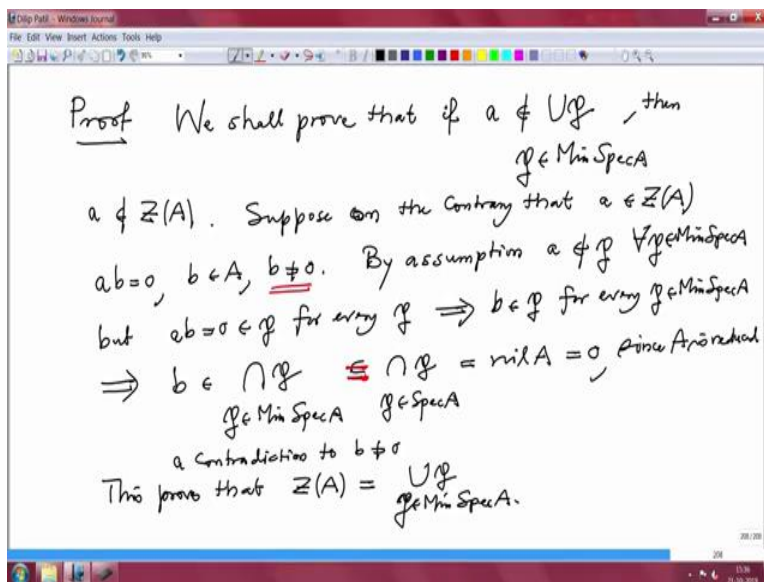 Dilip Patil - Windows Journal
File Edit View Insert Actions Tools Help
Proof We shall prove that if a ∉ ∪𝔭 , then
𝔭∈MinSpecA
a ∉ Z(A). Suppose on the contrary that a ∈ Z(A)
ab=0, b∈A, b≠0. By assumption a ∉ 𝔭 ∀𝔭∈MinSpecA
but ab=0 ∈ 𝔭 for every 𝔭 ⟹ b∈𝔭 for every 𝔭∈MinSpecA
⟹ b ∈ ∩𝔭 = ∩𝔭 = nil A = 0, since A is reduced
𝔭∈MinSpecA 𝔭∈SpecA
a contradiction to b≠0
This prove that Z(A) = ∪𝔭
𝔭∈MinSpecA.
208/208
204
15:36
21-10-2019